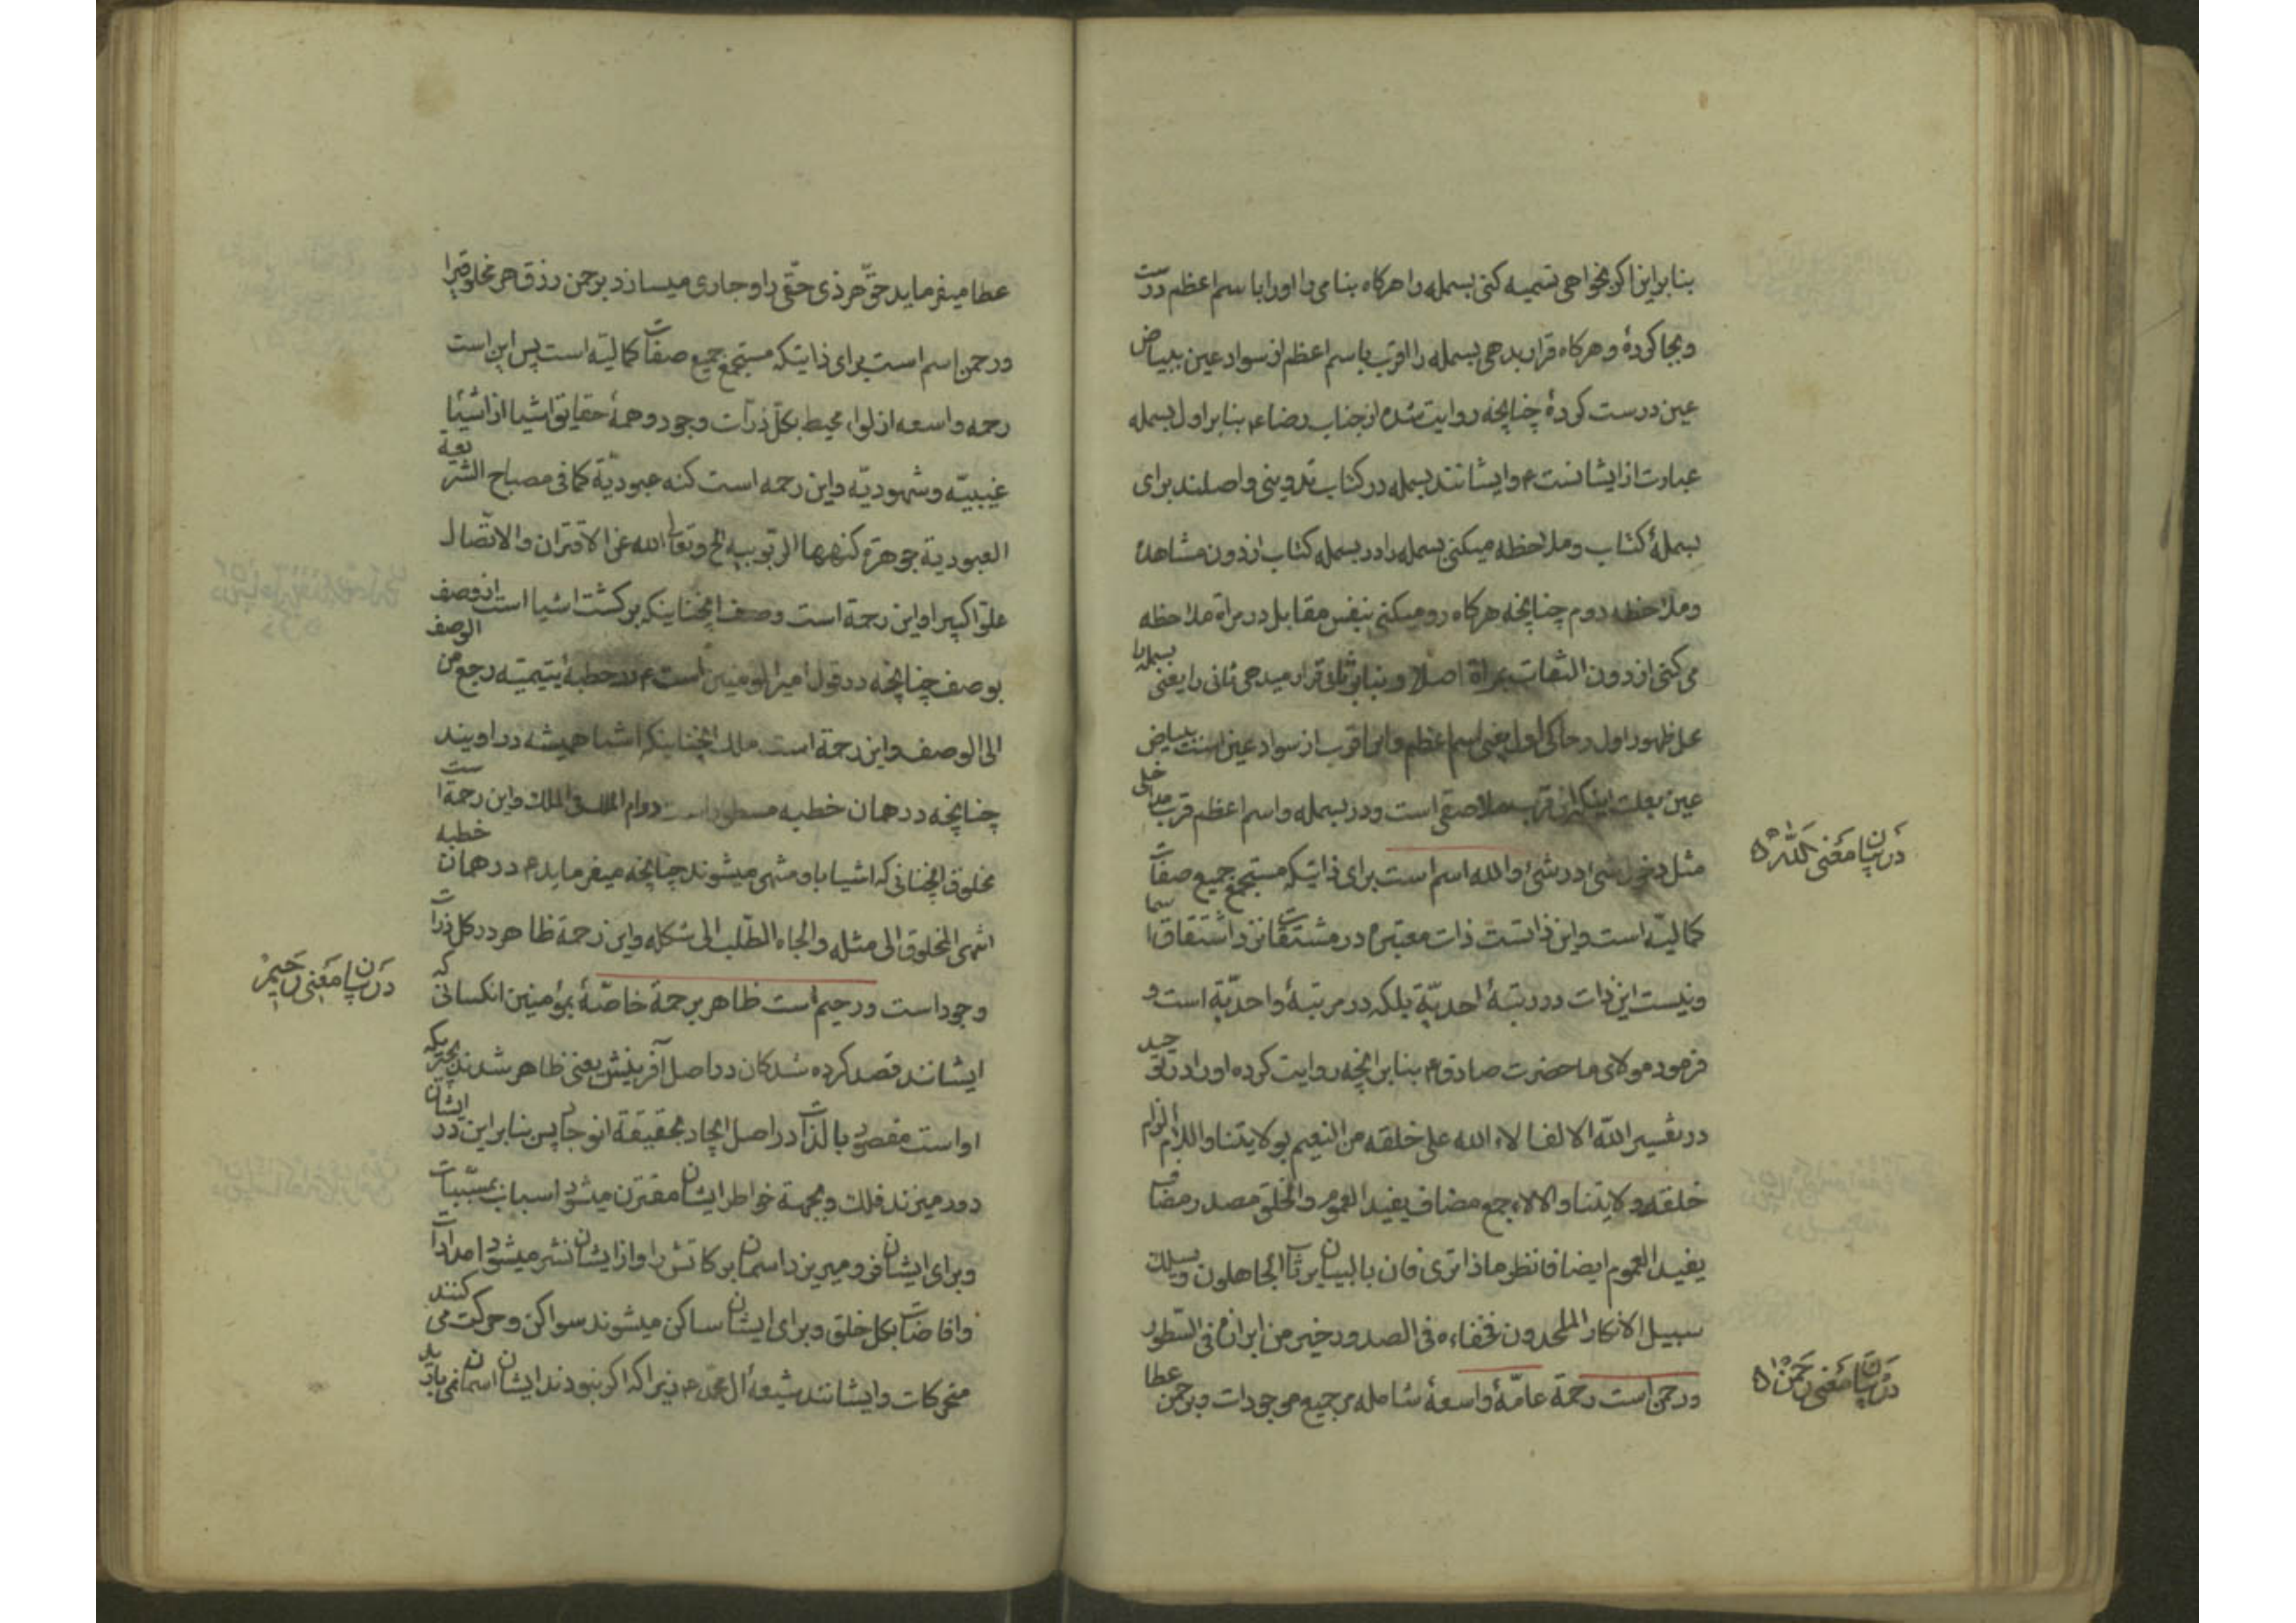 بنابراین اکر بخواهی تسمیه کنی بسمله را هرکاه بنامی را اورا با سم اعظم درست
و بجا کردهٔ و هرکاه قرار بدهی بسمله را اقرب باسم اعظم از سواد عین ببیاض
عین درست کردهٔ چنانچه روایت شده از جناب رضا ع بنابر اول بسمله
عبارت از ایشانست ع و ایشانند بسمله در کتاب تدوینی و اصلند برای
بسملهٔ کتاب و ملاحظه میکنی بسمله را در بسمله کتاب از دون مشاهدهٔ
وملاحظه دوم چنانچه هرکاه رو میکنی بنفس مقابل در مرآة ملاحظه
می کنی از دون التفات بمرآة اصلا و بنابر ثانی قرار میدهی ثانی را یعنی بسمله را
محل ظهور اول و حاکی اول یعنی اسم اعظم و این اقرب از سواد عین است ببیاض
عین بعلت اینکه این قرب ملاصقی است و در بسمله و اسم اعظم قرب مداخلی
مثل دخول شیٔ در شیٔ و الله اسم است برای ذاتیکه مستجمع جمیع صفات
کمالیّه است و این ذاتست ذات معتبره در مشتقات نزد اشتقاق اسما
و نیست این ذات در رتبهٔ احدیّة بلکه در مرتبهٔ واحدیّة است و
فرمود مولای ما حضرت صادق ع بنابر انچه روایت کرده اورا در توحید
در تفسیر اللّه الالف الاء الله علی خلقه من النعیم بولایتنا و اللام الزام
خلقه ولایتنا و الالاء جمع مضاف یفید العموم و الخلق مصدر مضاف
یفید العموم ایضا فانظر ماذا تری فان بالبیان یرتاب الجاهلون و یسلک
سبیل الانکار الملحدون فخفاءه فی الصدور خیر من ابرازه فی السّطور
ورحمن است رحمة عامّهٔ واسعهٔ شامله مر جمیع موجودات و برحمن عطا
در بیان معنی اللّه
در بیان معنی رحمن
عطا میفرماید حقّ هر ذی حقّی را و جاری میسازد برحمن رزق هر مخلوقیرا
ورحمن اسم است برای ذاتیکه مستجمع جمیع صفات کمالیّه است پس این است
رحمه واسعه ازلوا محیط بکلّ ذرّات وجود و همهٔ حقایق اشیا از اشیٔا
غیبیّه و شهودیّه و این رحمه است کنه عبودیّة کما فی مصباح الشریعة
العبودیة جوهرة کنهها الربوبییه الخ و تعالی الله عن الاقتران و الاتّصال
علوّا کبیرا و این رحمة است وصف انچنانیکه برکشت اشیا است از وصف
بوصف چنانچه در قول امیر المومنین است ع در خطبهٔ یتیمیّه رجع من الوصف
الی الوصف و این رحمة است ملک انچنانیکه اشیا همیشه در اویند
چنانچه در همان خطبه مسطور است دوام الملک فی الملک و این رحمة است
مخلوق انچنانی که اشیا باو منتهی میشوند چنانچه میفرماید ع در همان خطبه
انتهی المخلوق الی مثله و الجاه الطّلب الی شکله و این رحمة ظاهر در کل ذرات
وجود است و رحیم است ظاهر برحمة خاصّهٔ بمؤمنین انکسانی که
ایشانند قصد کرده شدکان در اصل آفرینش یعنی ظاهر شدند بچیزیکه
او است مقصود بالذّات در اصل ایجاد بحقیقة انوجاد پس بنابر این در ایشان
دور میزند فلک و بجهة خواطر ایشان مقترن میشود اسباب بمسبّبات
وبرای ایشان فرو میریزد اسمان برکاتش را و از ایشان نشر میشود امدادات
وافاضات بکل خلق و برای ایشان ساکن میشوند سواکن و حرکت می کنند
متحرکات و ایشانند شیعهٔ ال محمّد ع زیراکه اکر نبودند ایشان اسمان نمی بارید
در بیان معنی رحیم